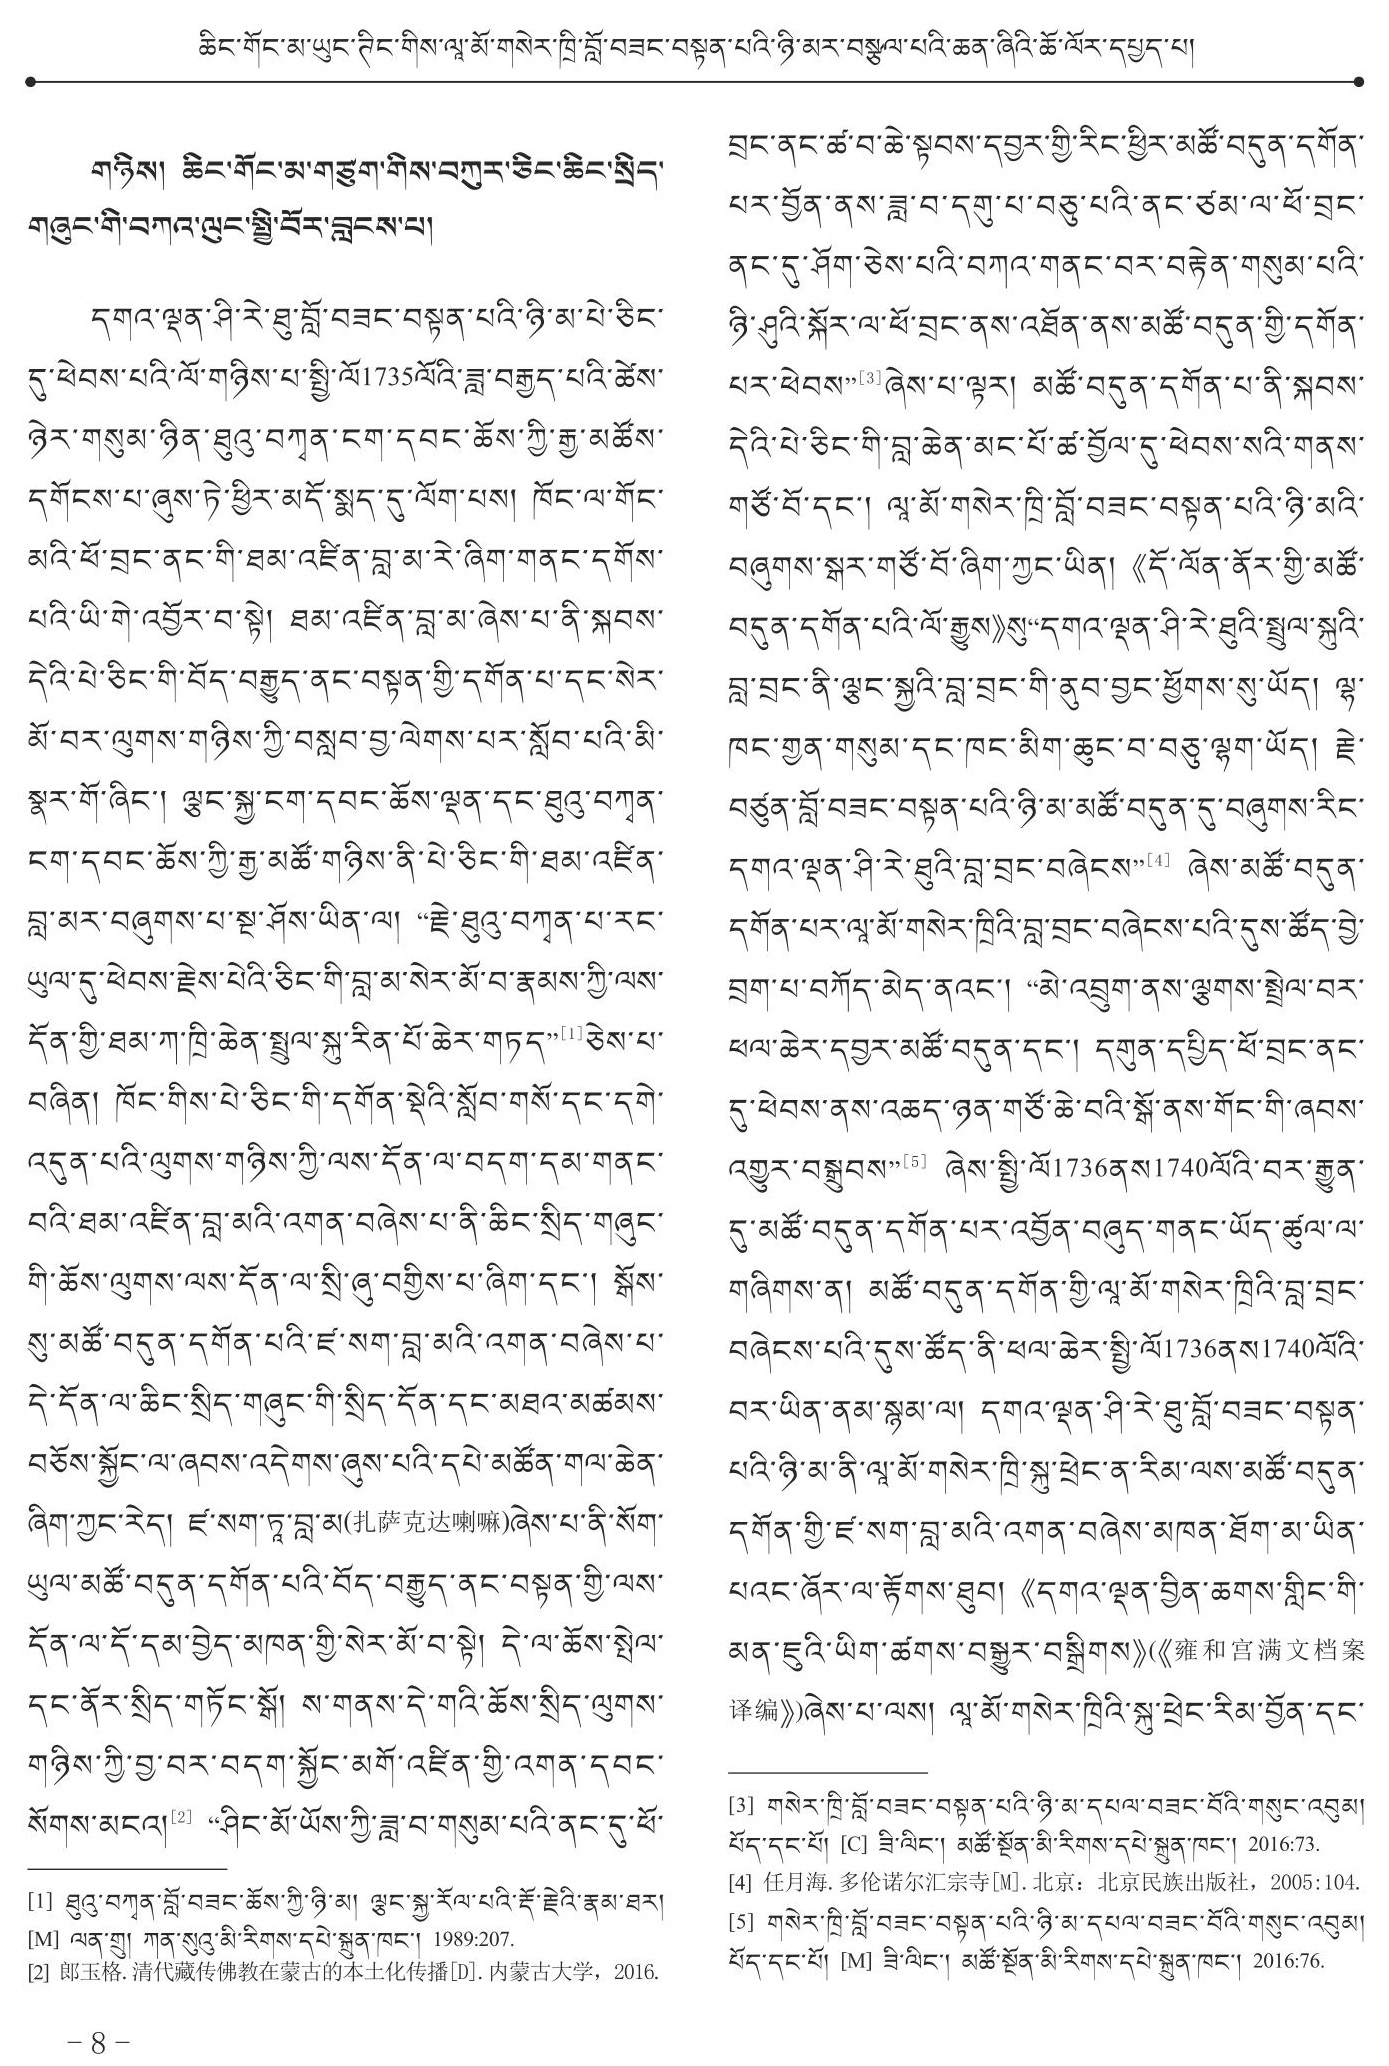 ཆིང་གོང་མ་ཡུང་ཏིང་གིས་ལཱ་མོ་གསེར་ཁྲི་བློ་བཟང་བསྟན་པའི་ཉི་མར་བསྩལ་པའི་ཆན་ཞིའི་ཆོ་ལོར་དཔྱད་པ།
གཉིས། ཆིང་གོང་མ་གཙུག་གིས་བཀུར་ཅིང་ཆིང་སྲིད་
གཞུང་གི་བཀའ་ལུང་སྤྱི་བོར་བླངས་པ།
དགའ་ལྡན་ཤི་རེ་ཐུ་བློ་བཟང་བསྟན་པའི་ཉི་མ་པེ་ཅིང་
དུ་ཕེབས་པའི་ལོ་གཉིས་པ་སྤྱི་ལོ1735ལོའི་ཟླ་བརྒྱད་པའི་ཚེས་
ཉེར་གསུམ་ཉིན་ཐུའུ་བཀྭན་ངག་དབང་ཆོས་ཀྱི་རྒྱ་མཚོས་
དགོངས་པ་ཞུས་ཏེ་ཕྱིར་མདོ་སྨད་དུ་ལོག་པས། ཁོང་ལ་གོང་
མའི་ཕོ་བྲང་ནང་གི་ཐམ་འཛིན་བླ་མ་རེ་ཞིག་གནང་དགོས་
པའི་ཡི་གེ་འབྱོར་བ་སྟེ། ཐམ་འཛིན་བླ་མ་ཞེས་པ་ནི་སྐབས་
དེའི་པེ་ཅིང་གི་བོད་བརྒྱུད་ནང་བསྟན་གྱི་དགོན་པ་དང་སེར་
མོ་བར་ལུགས་གཉིས་ཀྱི་བསླབ་བྱ་ལེགས་པར་སློབ་པའི་མི་
སྣར་གོ་ཞིང་། ལྕང་སྐྱ་ངག་དབང་ཆོས་ལྡན་དང་ཐུའུ་བཀྭན་
ངག་དབང་ཆོས་ཀྱི་རྒྱ་མཚོ་གཉིས་ནི་པེ་ཅིང་གི་ཐམ་འཛིན་
བླ་མར་བཞུགས་པ་སྔ་ཤོས་ཡིན་ལ། “རྗེ་ཐུའུ་བཀྭན་པ་རང་
ཡུལ་དུ་ཕེབས་རྗེས་པེའི་ཅིང་གི་བླ་མ་སེར་མོ་བ་རྣམས་ཀྱི་ལས་
དོན་གྱི་ཐམ་ཀ་ཁྲི་ཆེན་སྤྲུལ་སྐུ་རིན་པོ་ཆེར་གཏད”[1]ཅེས་པ་
བཞིན། ཁོང་གིས་པེ་ཅིང་གི་དགོན་སྡེའི་སློབ་གསོ་དང་དགེ་
འདུན་པའི་ལུགས་གཉིས་ཀྱི་ལས་དོན་ལ་བདག་དམ་གནང་
བའི་ཐམ་འཛིན་བླ་མའི་འགན་བཞེས་པ་ནི་ཆིང་སྲིད་གཞུང་
གི་ཆོས་ལུགས་ལས་དོན་ལ་སྲི་ཞུ་བགྱིས་པ་ཞིག་དང་། སྒོས་
སུ་མཚོ་བདུན་དགོན་པའི་ཛ་སག་བླ་མའི་འགན་བཞེས་པ་
དེ་དོན་ལ་ཆིང་སྲིད་གཞུང་གི་སྲིད་དོན་དང་མཐའ་མཚམས་
བཅོས་སྐྱོང་ལ་ཞབས་འདེགས་ཞུས་པའི་དཔེ་མཚོན་གལ་ཆེན་
ཞིག་ཀྱང་རེད། ཛ་སག་ཏཱ་བླ་མ(扎萨克达喇嘛)ཞེས་པ་ནི་སོག་
ཡུལ་མཚོ་བདུན་དགོན་པའི་བོད་བརྒྱུད་ནང་བསྟན་གྱི་ལས་
དོན་ལ་དོ་དམ་བྱེད་མཁན་གྱི་སེར་མོ་བ་སྟེ། དེ་ལ་ཆོས་སྤེལ་
དང་ནོར་སྲིད་གཏོང་སྒོ། ས་གནས་དེ་གའི་ཆོས་སྲིད་ལུགས་
གཉིས་ཀྱི་བྱ་བར་བདག་སྐྱོང་མགོ་འཛིན་གྱི་འགན་དབང་
སོགས་མངའ།[2] “ཤིང་མོ་ཡོས་ཀྱི་ཟླ་བ་གསུམ་པའི་ནང་དུ་ཕོ་
[1] ཐུའུ་བཀྭན་བློ་བཟང་ཆོས་ཀྱི་ཉི་མ། ལྕང་སྐྱ་རོལ་པའི་རྡོ་རྗེའི་རྣམ་ཐར།
[M] ལན་གྲུ། ཀན་སུའུ་མི་རིགས་དཔེ་སྐྲུན་ཁང་། 1989:207.
[2] 郎玉格.清代藏传佛教在蒙古的本土化传播[D].内蒙古大学，2016.
བྲང་ནང་ཚ་བ་ཆེ་སྟབས་དབྱར་གྱི་རིང་ཕྱིར་མཚོ་བདུན་དགོན་
པར་བྱོན་ནས་ཟླ་བ་དགུ་པ་བཅུ་པའི་ནང་ཙམ་ལ་ཕོ་བྲང་
ནང་དུ་ཤོག་ཅེས་པའི་བཀའ་གནང་བར་བརྟེན་གསུམ་པའི་
ཉི་ཤུའི་སྐོར་ལ་ཕོ་བྲང་ནས་འཐོན་ནས་མཚོ་བདུན་གྱི་དགོན་
པར་ཕེབས”[3]ཞེས་པ་ལྟར། མཚོ་བདུན་དགོན་པ་ནི་སྐབས་
དེའི་པེ་ཅིང་གི་བླ་ཆེན་མང་པོ་ཚ་བྱོལ་དུ་ཕེབས་སའི་གནས་
གཙོ་བོ་དང་། ལཱ་མོ་གསེར་ཁྲི་བློ་བཟང་བསྟན་པའི་ཉི་མའི་
བཞུགས་སྒར་གཙོ་བོ་ཞིག་ཀྱང་ཡིན། 《དོ་ལོན་ནོར་གྱི་མཚོ་
བདུན་དགོན་པའི་ལོ་རྒྱུས》སུ“དགའ་ལྡན་ཤི་རེ་ཐུའི་སྤྲུལ་སྐུའི་
བླ་བྲང་ནི་ལྕང་སྐྱའི་བླ་བྲང་གི་ནུབ་བྱང་ཕྱོགས་སུ་ཡོད། ལྷ་
ཁང་གྱན་གསུམ་དང་ཁང་མིག་ཆུང་བ་བཅུ་ལྷག་ཡོད། རྗེ་
བཙུན་བློ་བཟང་བསྟན་པའི་ཉི་མ་མཚོ་བདུན་དུ་བཞུགས་རིང་
དགའ་ལྡན་ཤི་རེ་ཐུའི་བླ་བྲང་བཞེངས”[4] ཞེས་མཚོ་བདུན་
དགོན་པར་ལཱ་མོ་གསེར་ཁྲིའི་བླ་བྲང་བཞེངས་པའི་དུས་ཚོད་བྱེ་
བྲག་པ་བཀོད་མེད་ནའང་། “མེ་འབྲུག་ནས་ལྕགས་སྤྲེལ་བར་
ཕལ་ཆེར་དབྱར་མཚོ་བདུན་དང་། དགུན་དཔྱིད་ཕོ་བྲང་ནང་
དུ་ཕེབས་ནས་འཆད་ཉན་གཙོ་ཆེ་བའི་སྒོ་ནས་གོང་གི་ཞབས་
འགྱུར་བསྒྲུབས”[5] ཞེས་སྤྱི་ལོ1736ནས1740ལོའི་བར་རྒྱུན་
དུ་མཚོ་བདུན་དགོན་པར་འབྱོན་བཞུད་གནང་ཡོད་ཚུལ་ལ་
གཞིགས་ན། མཚོ་བདུན་དགོན་གྱི་ལཱ་མོ་གསེར་ཁྲིའི་བླ་བྲང་
བཞེངས་པའི་དུས་ཚོད་ནི་ཕལ་ཆེར་སྤྱི་ལོ1736ནས1740ལོའི་
བར་ཡིན་ནམ་སྙམ་ལ། དགའ་ལྡན་ཤི་རེ་ཐུ་བློ་བཟང་བསྟན་
པའི་ཉི་མ་ནི་ལཱ་མོ་གསེར་ཁྲི་སྐུ་ཕྲེང་ན་རིམ་ལས་མཚོ་བདུན་
དགོན་གྱི་ཛ་སག་བླ་མའི་འགན་བཞེས་མཁན་ཐོག་མ་ཡིན་
པའང་ཞོར་ལ་རྟོགས་ཐུབ། 《དགའ་ལྡན་བྱིན་ཆགས་གླིང་གི་
མན་ཇུའི་ཡིག་ཚགས་བསྒྱུར་བསྒྲིགས》(《雍和宫满文档案
译编》)ཞེས་པ་ལས། ལཱ་མོ་གསེར་ཁྲིའི་སྐུ་ཕྲེང་རིམ་བྱོན་དང་
[3] གསེར་ཁྲི་བློ་བཟང་བསྟན་པའི་ཉི་མ་དཔལ་བཟང་པོའི་གསུང་འབུམ།
པོད་དང་པོ། [C] ཟི་ལིང་། མཚོ་སྔོན་མི་རིགས་དཔེ་སྐྲུན་ཁང་། 2016:73.
[4] 任月海.多伦诺尔汇宗寺[M].北京：北京民族出版社，2005:104.
[5] གསེར་ཁྲི་བློ་བཟང་བསྟན་པའི་ཉི་མ་དཔལ་བཟང་པོའི་གསུང་འབུམ།
པོད་དང་པོ། [M] ཟི་ལིང་། མཚོ་སྔོན་མི་རིགས་དཔེ་སྐྲུན་ཁང་། 2016:76.
- 8 -